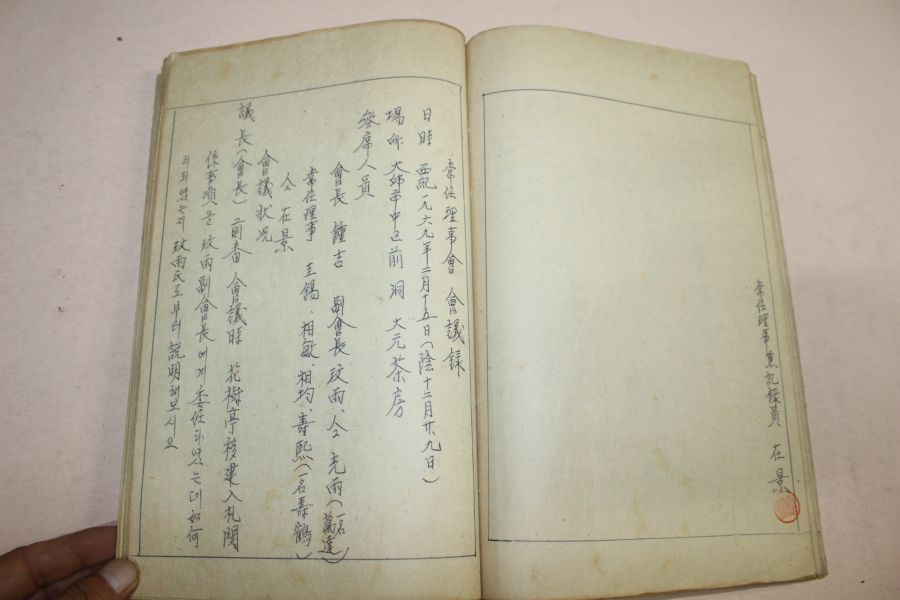 常任理事 兼記錄員 在景
常任理事會 會議錄
日時 西紀一九六九年二月十五日(陰十二月廿九日)
場所 大邱市中区前洞 大元茶房
參席人員
會長 鍾吉 副會長 玟雨、仝 光雨(一名萬達)
常任理事 圭錫、相敏、相均、壽熙(一名壽鶴)
仝 在景
會議狀况
議長(會長) 前番 會議時 花樹亭移建入札関
係事項을 玟雨副會長에게 委任하였는데 如何
히 되였는지 玟雨氏로부터 說明해보시오